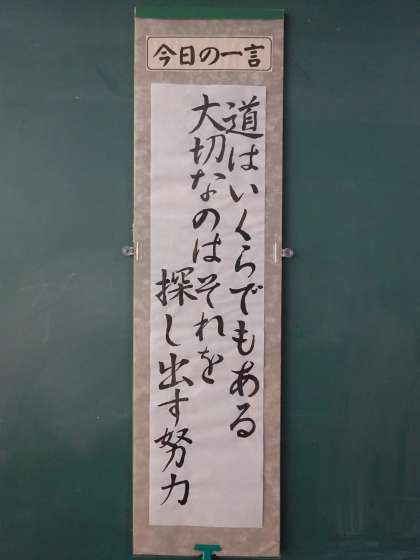 今日の一言
道はいくらでもある
大切なのはそれを
探し出す努力